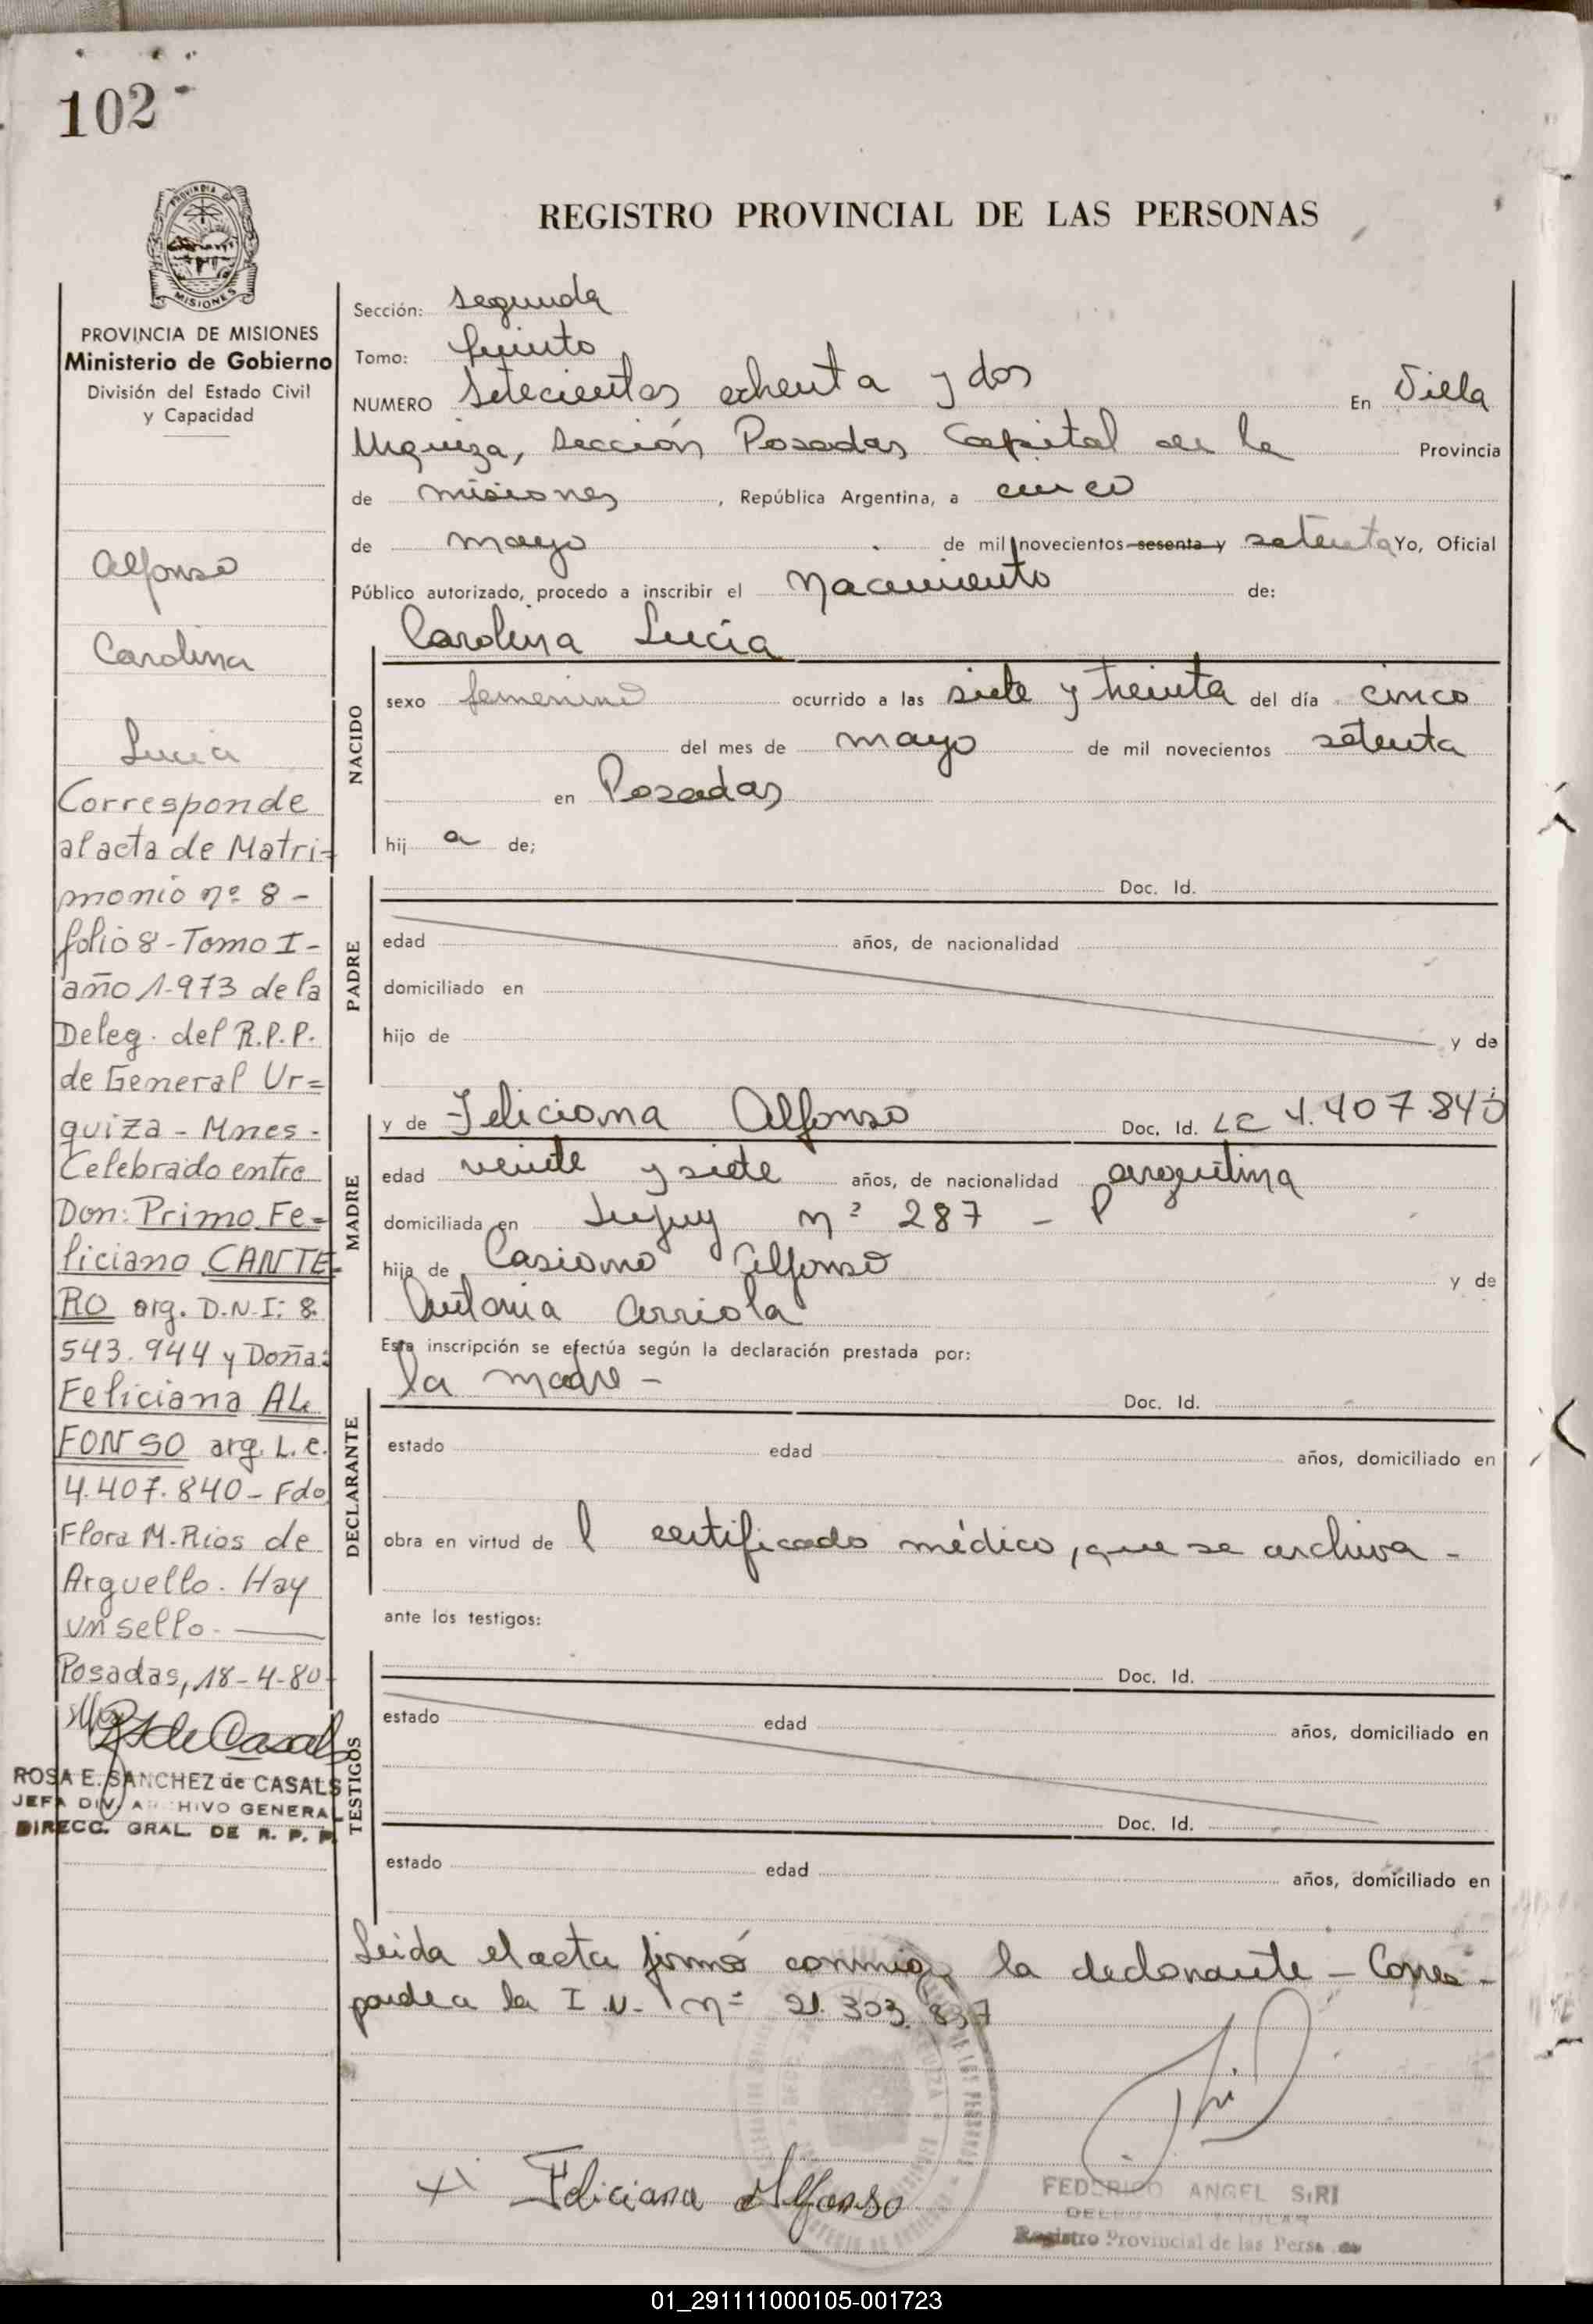 102
PROVINCIA DE MISIONES
PROVINCIA DE MISIONES
Ministerio de Gobierno
División del Estado Civil
y Capacidad
Alfonso
Carolina
Lucia
Corresponde
al acta de Matri=
monio nº 8 -
folio 8 - Tomo I -
año 1.973 de la
Deleg. del R.P.P.
de General Ur=
quiza - Mnes -
Celebrado entre
Don: Primo Fe=
liciano CANTE-
RO arg. D.N.I: 8.
543.944 y Doña:
Feliciana AL
FONSO arg. L.C.
4.407.840 - Fdo
Flora M. Rios de
Arguello. Hay
un sello.
Posadas, 18-4-80
ROSA E. SANCHEZ de CASALS
JEFA DIV. ARCHIVO GENERAL
DIRECC. GRAL. DE R. P. P.
REGISTRO PROVINCIAL DE LAS PERSONAS
Sección: segunda
Tomo: Quinto
NUMERO Setecientos ochenta y dos En Villa
Urquiza, sección Posadas Capital de la Provincia
de misiones, República Argentina, a cinco
de mayo de mil novecientos sesenta y setenta Yo, Oficial
Público autorizado, procedo a inscribir el Nacimiento de:
Carolina Lucía
NACIDO
sexo femenino ocurrido a las siete y treinta del día cinco
del mes de mayo de mil novecientos setenta
en Posadas
hij a de;
PADRE
Doc. Id.
edad años, de nacionalidad
domiciliado en
hijo de y de
MADRE
y de Feliciana Alfonso Doc. Id. LC 4.407.840
edad veinte y siete años, de nacionalidad argentina
domiciliada en Jujuy nº 287 - P
hija de Casiano Alfonso y de
Antonia Arriola
Esta inscripción se efectúa según la declaración prestada por:
la madre -
DECLARANTE
Doc. Id.
estado edad años, domiciliado en
obra en virtud de l certificado médico, que se archiva -
ante los testigos:
TESTIGOS
Doc. Id.
estado edad años, domiciliado en
Doc. Id.
estado edad años, domiciliado en
Leida el acta firmó conmigo la declarante - Corres-
ponde a la I.N. nº 21.303.837
Feliciana Alfonso
FEDERICO ANGEL SIRI
Registro Provincial de las Personas
01_291111000105-001723